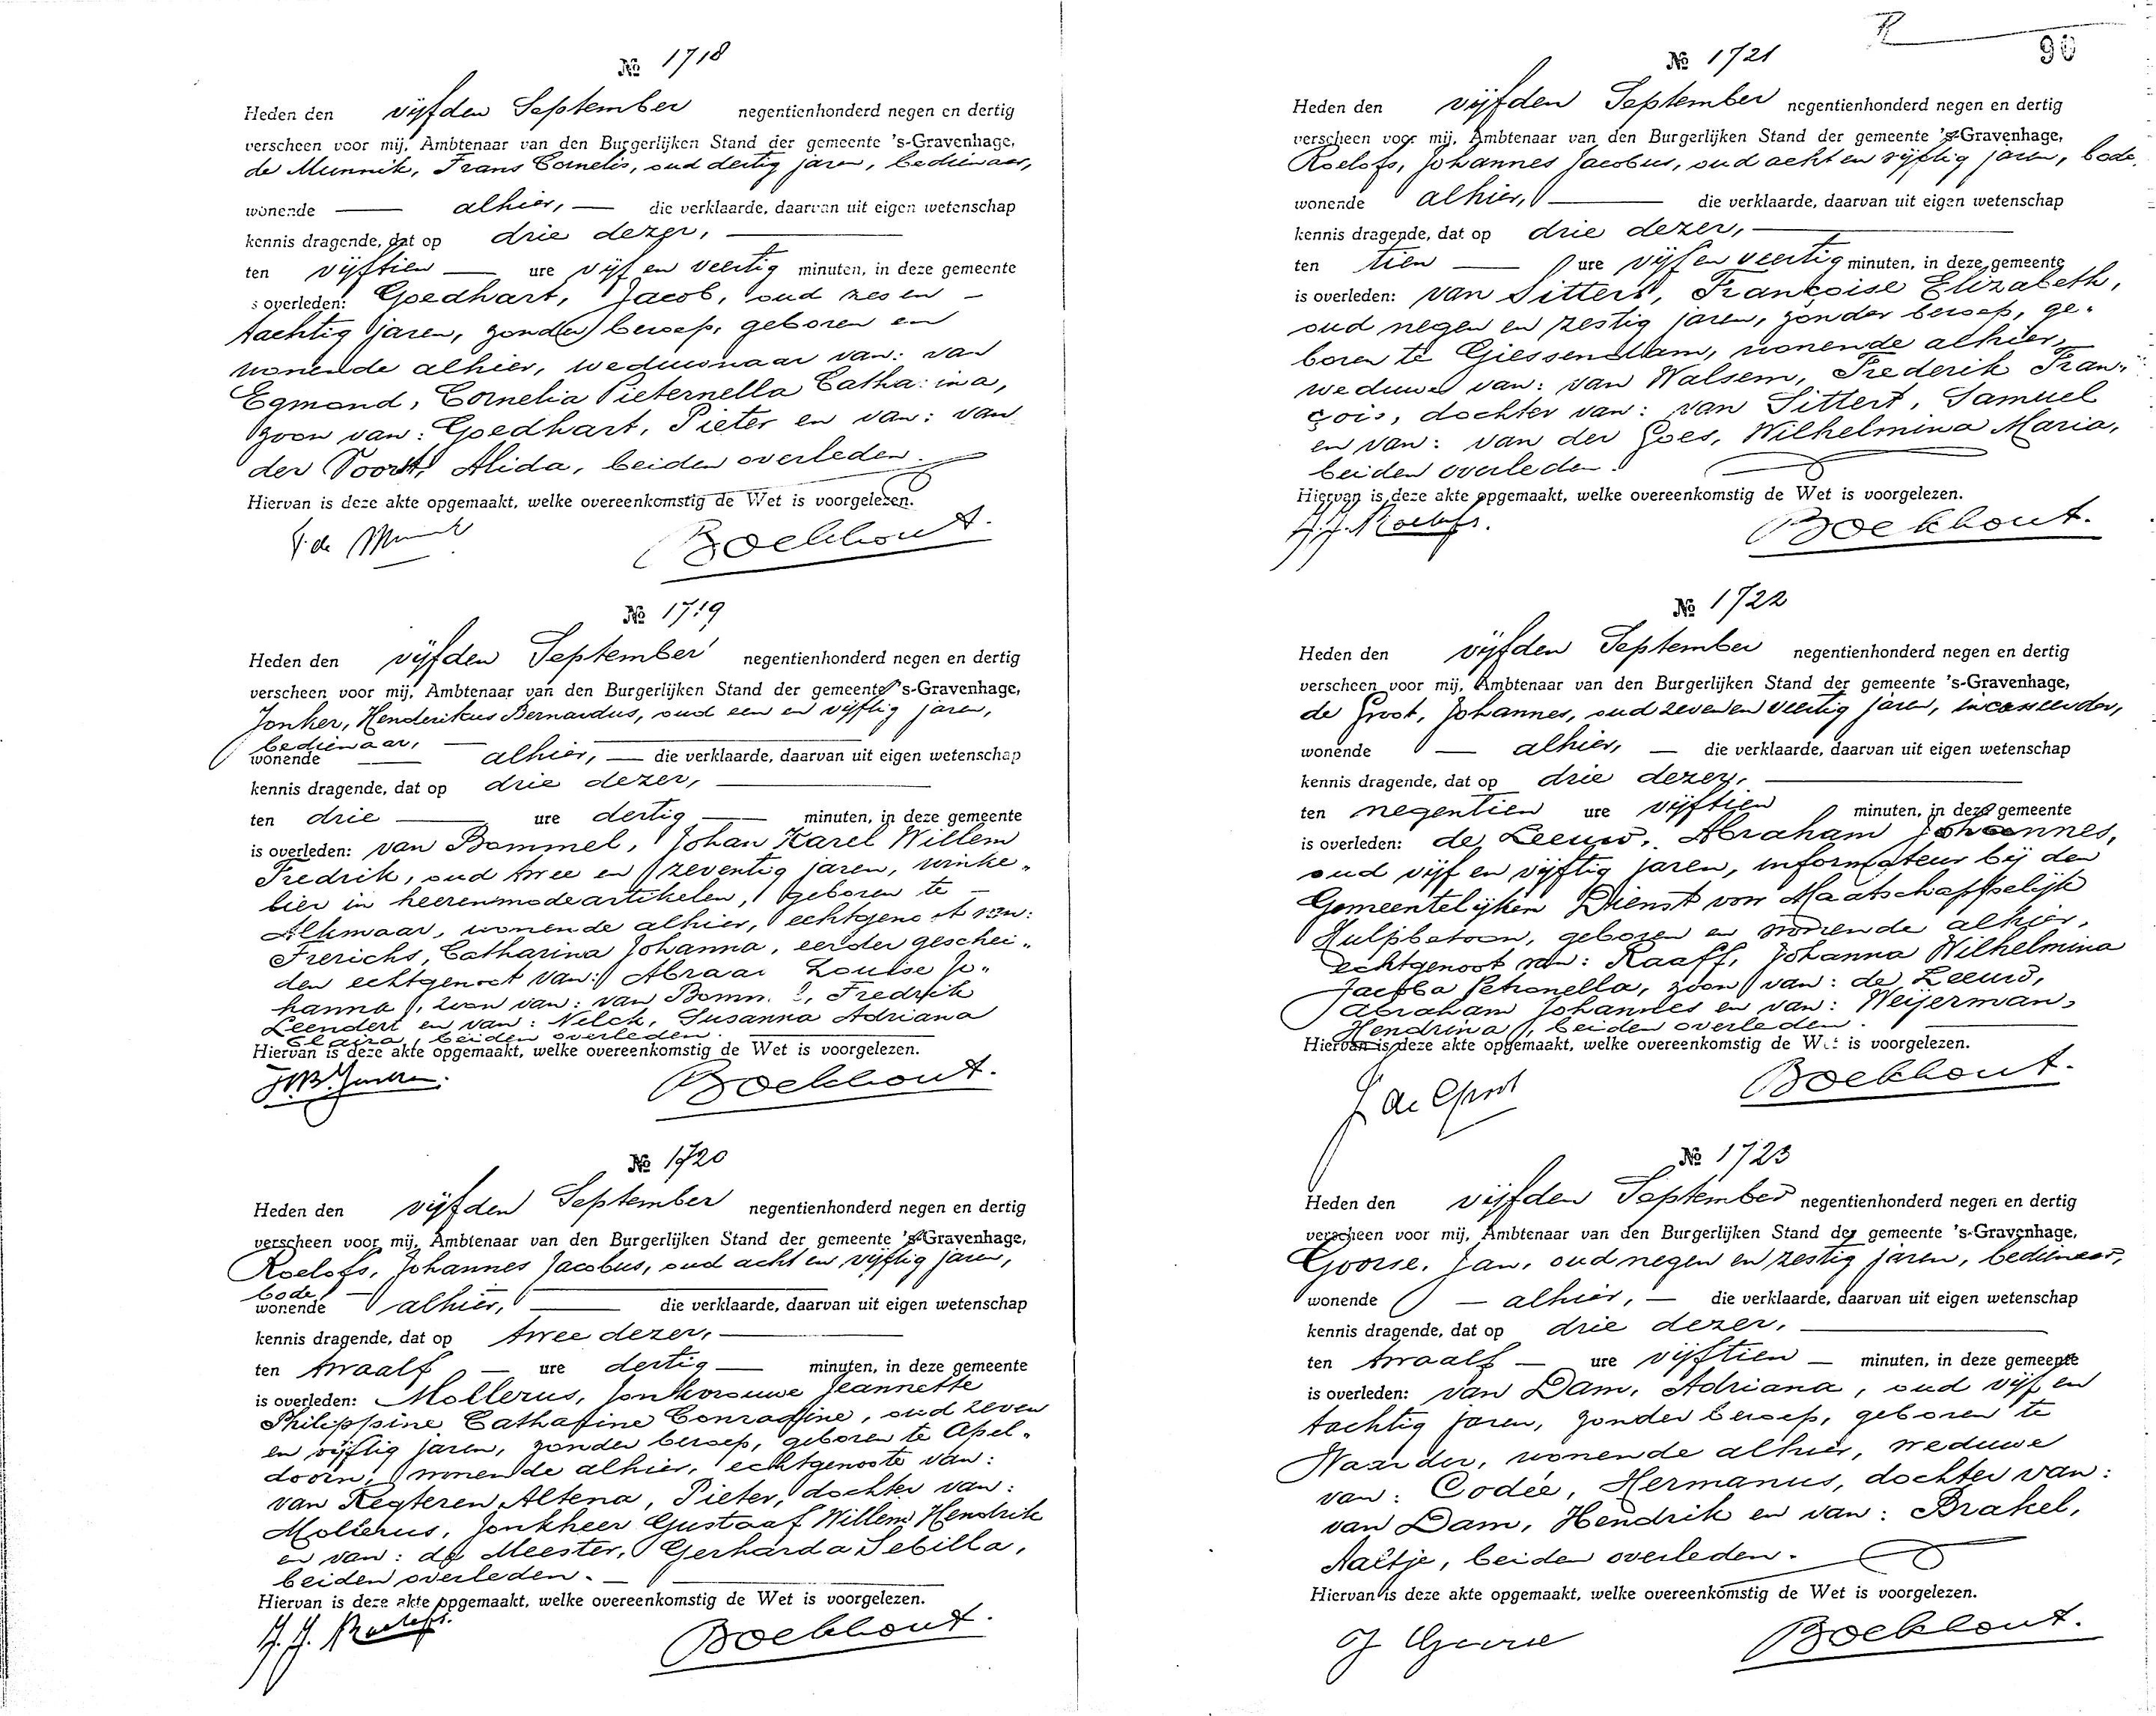 № 1718
Heden den vijfden September negentienhonderd negen en dertig
verscheen voor mij, Ambtenaar van den Burgerlijken Stand der gemeente 's-Gravenhage,
de Munnik, Frans Cornelis, oud dertig jaren, bedienaar,
wonende alhier, die verklaarde, daarvan uit eigen wetenschap
kennis dragende, dat op drie dezer,
ten vijftien ure vijf en veertig minuten, in deze gemeente
s overleden: Goedhart, Jacob, oud zes en
tachtig jaren, zonder beroep, geboren en
wonende alhier, weduwnaar van: van
Egmond, Cornelia Pieternella Catha:ina,
zoon van: Goedhart, Pieter en van: van
der Voort, Alida, beiden overleden.
Hiervan is deze akte opgemaakt, welke overeenkomstig de Wet is voorgelezen.
F. de Munnik Boekhout.
№ 1719
Heden den vijfden September negentienhonderd negen en dertig
verscheen voor mij, Ambtenaar van den Burgerlijken Stand der gemeente 's-Gravenhage,
Jonker, Henderikus Bernardus, oud een en vijftig jaren,
bedienaar,
wonende alhier, die verklaarde, daarvan uit eigen wetenschap
kennis dragende, dat op drie dezer,
ten drie ure dertig minuten, in deze gemeente
is overleden: van Bommel, Johan Karel Willem
Fredrik, oud twee en zeventig jaren, winke„
lier in heerenmodeartikelen, geboren te
Alkmaar, wonende alhier, echtgenoot van:
Frerichs, Catharina Johanna, eerder geschei„
den echtgenoot van: Abraas Louise Jo„
hanna, zoon van: van Bomm. l, Fredrik
Leendert en van: Nelck, Susanna Adriana
Claira, beiden overleden.
Hiervan is deze akte opgemaakt, welke overeenkomstig de Wet is voorgelezen.
H.B. Jonker. Boekhout.
№ 1720
Heden den vijfden September negentienhonderd negen en dertig
verscheen voor mij, Ambtenaar van den Burgerlijken Stand der gemeente 's-Gravenhage,
Roelofs, Johannes Jacobus, oud acht en vijftig jaren,
bode,
wonende alhier, die verklaarde, daarvan uit eigen wetenschap
kennis dragende, dat op twee dezer,
ten twaalf ure dertig minuten, in deze gemeente
is overleden: Mollerus, Jonkvrouwe Jeannette
Philippine Catharine Conradine, oud zeven
en vijftig jaren, zonder beroep, geboren te Apel„
doorn, wonende alhier, echtgenoote van:
van Regteren Altena, Pieter, dochter van:
Mollerus, Jonkheer Gustaaf Willem Hendrik
en van: de Meester, Gerharda Sebilla,
beiden overleden.
Hiervan is deze akte opgemaakt, welke overeenkomstig de Wet is voorgelezen.
J.J. Roelofs. Boekhout.
90
№ 1721
Heden den vijfden September negentienhonderd negen en dertig
verscheen voor mij, Ambtenaar van den Burgerlijken Stand der gemeente 's-Gravenhage,
Roelofs, Johannes Jacobus, oud acht en vijftig jaren, bode,
wonende alhier, die verklaarde, daarvan uit eigen wetenschap
kennis dragende, dat op drie dezer,
ten tien ure vijf en veertig minuten, in deze gemeente
is overleden: van Sittert, Françoise Elizabeth,
oud negen en zestig jaren, zonder beroep, ge„
boren te Giessendam, wonende alhier,
weduwe van: van Walsem, Frederik Fran„
çois, dochter van: van Sittert, Samuel
en van: van der Goes, Wilhelmina Maria,
beiden overleden.
Hiervan is deze akte opgemaakt, welke overeenkomstig de Wet is voorgelezen.
J.J. Roelofs. Boekhout.
№ 1722
Heden den vijfden September negentienhonderd negen en dertig
verscheen voor mij, Ambtenaar van den Burgerlijken Stand der gemeente 's-Gravenhage,
de Groot, Johannes, oud zeven en veertig jaren, incasseerder,
wonende alhier, die verklaarde, daarvan uit eigen wetenschap
kennis dragende, dat op drie dezer,
ten negentien ure vijftien minuten, in deze gemeente
is overleden: de Leeuw, Abraham Johannes,
oud vijf en vijftig jaren, informateur bij den
Gemeentelijken Dienst voor Maatschappelijk
Hulpbetoon, geboren en wonende alhier,
echtgenoot van: Raaff, Johanna Wilhelmina
Jacoba Petronella, zoon van: de Leeuw,
Abraham Johannes en van: Weijerman,
Hendrina, beiden overleden.
Hiervan is deze akte opgemaakt, welke overeenkomstig de Wet is voorgelezen.
J de Groot Boekhout.
№ 1723
Heden den vijfden September negentienhonderd negen en dertig
verscheen voor mij, Ambtenaar van den Burgerlijken Stand der gemeente 's-Gravenhage,
Goorse, Jan, oud negen en zestig jaren, bedienaar,
wonende alhier, die verklaarde, daarvan uit eigen wetenschap
kennis dragende, dat op drie dezer,
ten twaalf ure vijftien minuten, in deze gemeente
is overleden: van Dam, Adriana, oud vijf en
tachtig jaren, zonder beroep, geboren te
Waarder, wonende alhier, weduwe
van: Codée, Hermanus, dochter van:
van Dam, Hendrik en van: Brakel,
Aaltje, beiden overleden.
Hiervan is deze akte opgemaakt, welke overeenkomstig de Wet is voorgelezen.
J Goorse Boekhout.